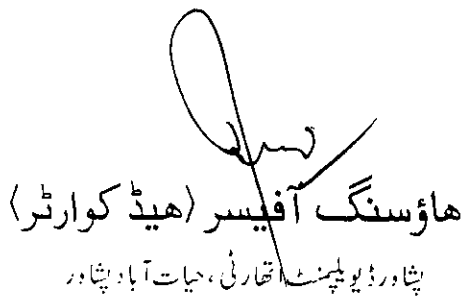 ھاؤسنگ آفیسر (ھیڈ کوارٹر)
پشاور ڈیویلپمنٹ اتھارٹی، حیات آباد پشاور